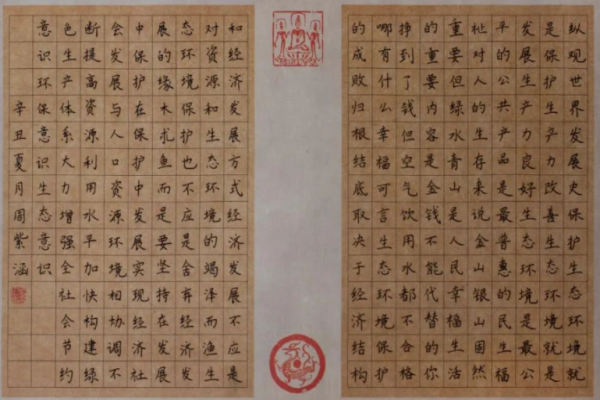 纵观世界发展史保护生态环境就
是保护生产力改善生态环境就是
发展生产力良好生态环境是最公
平的公共产品是最普惠的民生福
祉对人的生存来说金山银山固然
重要但绿水青山是人民幸福生活
的重要内容是金钱不能代替的你
挣到了钱但空气饮用水都不合格
哪有什么幸福可言生态环境保护
的成败归根结底取决于经济结构
和经济发展方式经济发展不应是
对资源和生态环境的竭泽而渔生
态环境保护也不应是舍弃经济发
展的缘木求鱼而是要坚持在发展
中保护在保护中发展实现经济社
会发展与人口资源环境相协调不
断提高资源利用水平加快构建绿
色生产体系大力增强全社会节约
意识环保意识生态意识
辛丑夏月周紫涵